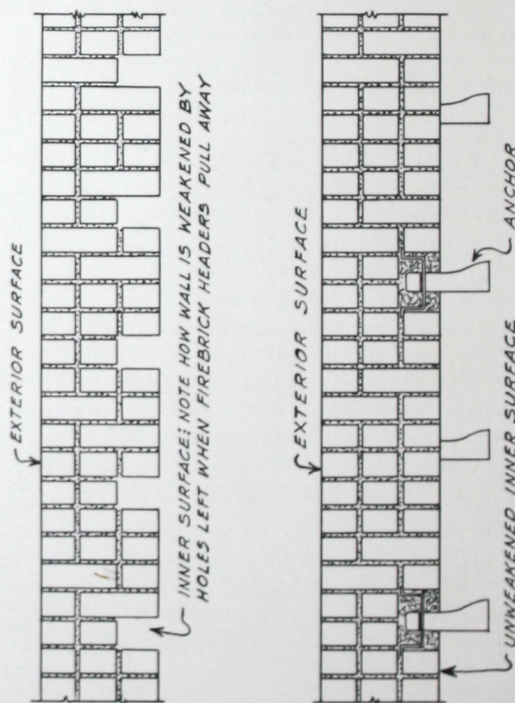 EXTERIOR SURFACE
INNER SURFACE; NOTE HOW WALL IS WEAKENED BY
HOLES LEFT WHEN FIREBRICK HEADERS PULL AWAY
EXTERIOR SURFACE
ANCHOR
UNWEAKENED INNER SURFACE